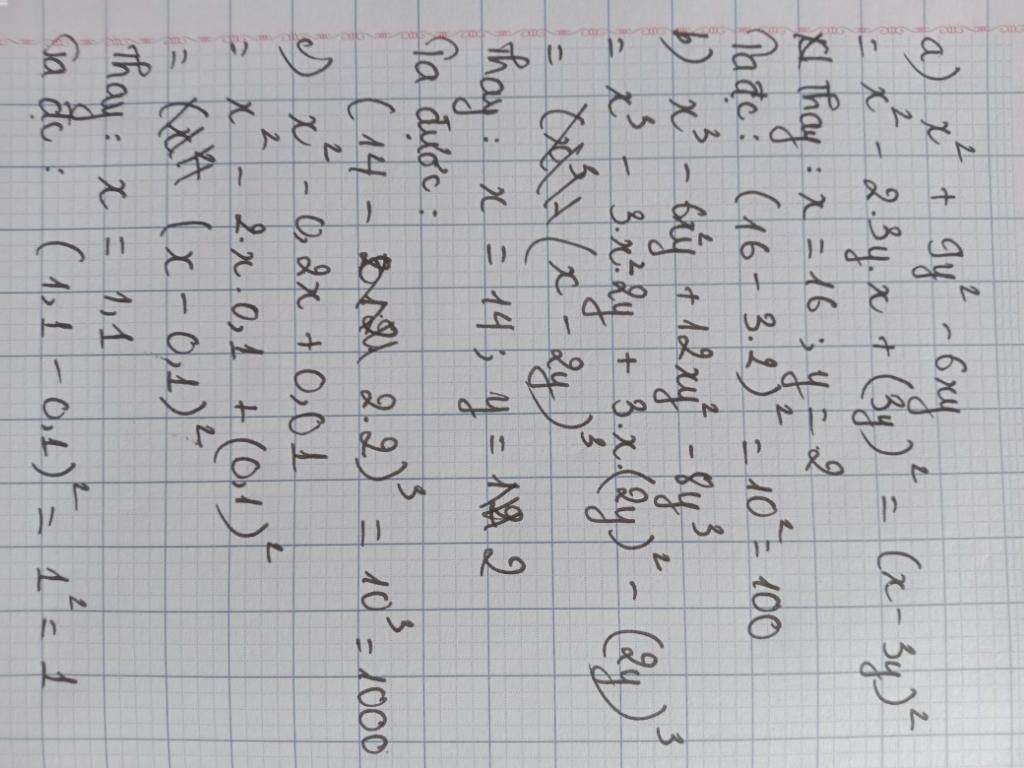 a) x² + 9y² - 6xy
= x² - 2.3y.x + (3y)² = (x - 3y)²
Thay : x = 16 ; y = 2
Ta đc : (16 - 3.2)² = 10² = 100
b) x³ - 6x²y + 12xy² - 8y³
= x³ - 3.x².2y + 3.x.(2y)² - (2y)³
= (x - 2y)³
Thay : x = 14 ; y = 2
Ta được :
(14 - 2.2)³ = 10³ = 1000
c) x² - 0,2x + 0,01
= x² - 2.x.0,1 + (0,1)²
= (x - 0,1)²
Thay : x = 1,1
Ta đc : (1,1 - 0,1)² = 1² = 1